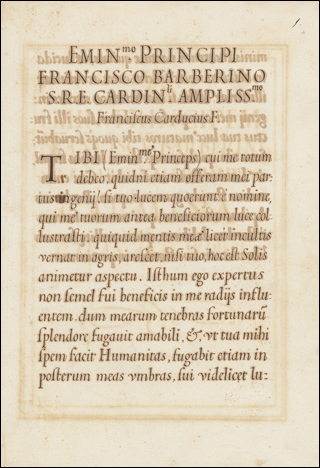 1
EMIN.mo PRINCIPI
FRANCISCO BARBERINO
S.R.E. CARDIN.li AMPLISS.mo
Franciscus Carducius F.
TIBI (Emin.me Princeps) cui me totum
debeo, quidni etiam offeram mei par-
tus ingenij? si tuo lucem quærant è nomine,
qui me tuorum antea beneficiorum luce col-
lustrasti: quiquid mentis meæ licet incultis
vernat in agris, aresceret, nisi tuo, hoc est Solis
animetur aspectu. Isthum ego expertus
non semel fui beneficis in me radijs influ-
entem, dum mearum tenebras fortunarū
splendore fugauit amabili, &, vt tua mihi
spem facit Humanitas, fugabit etiam in
posterum meas vmbras, sui videlicet lu-